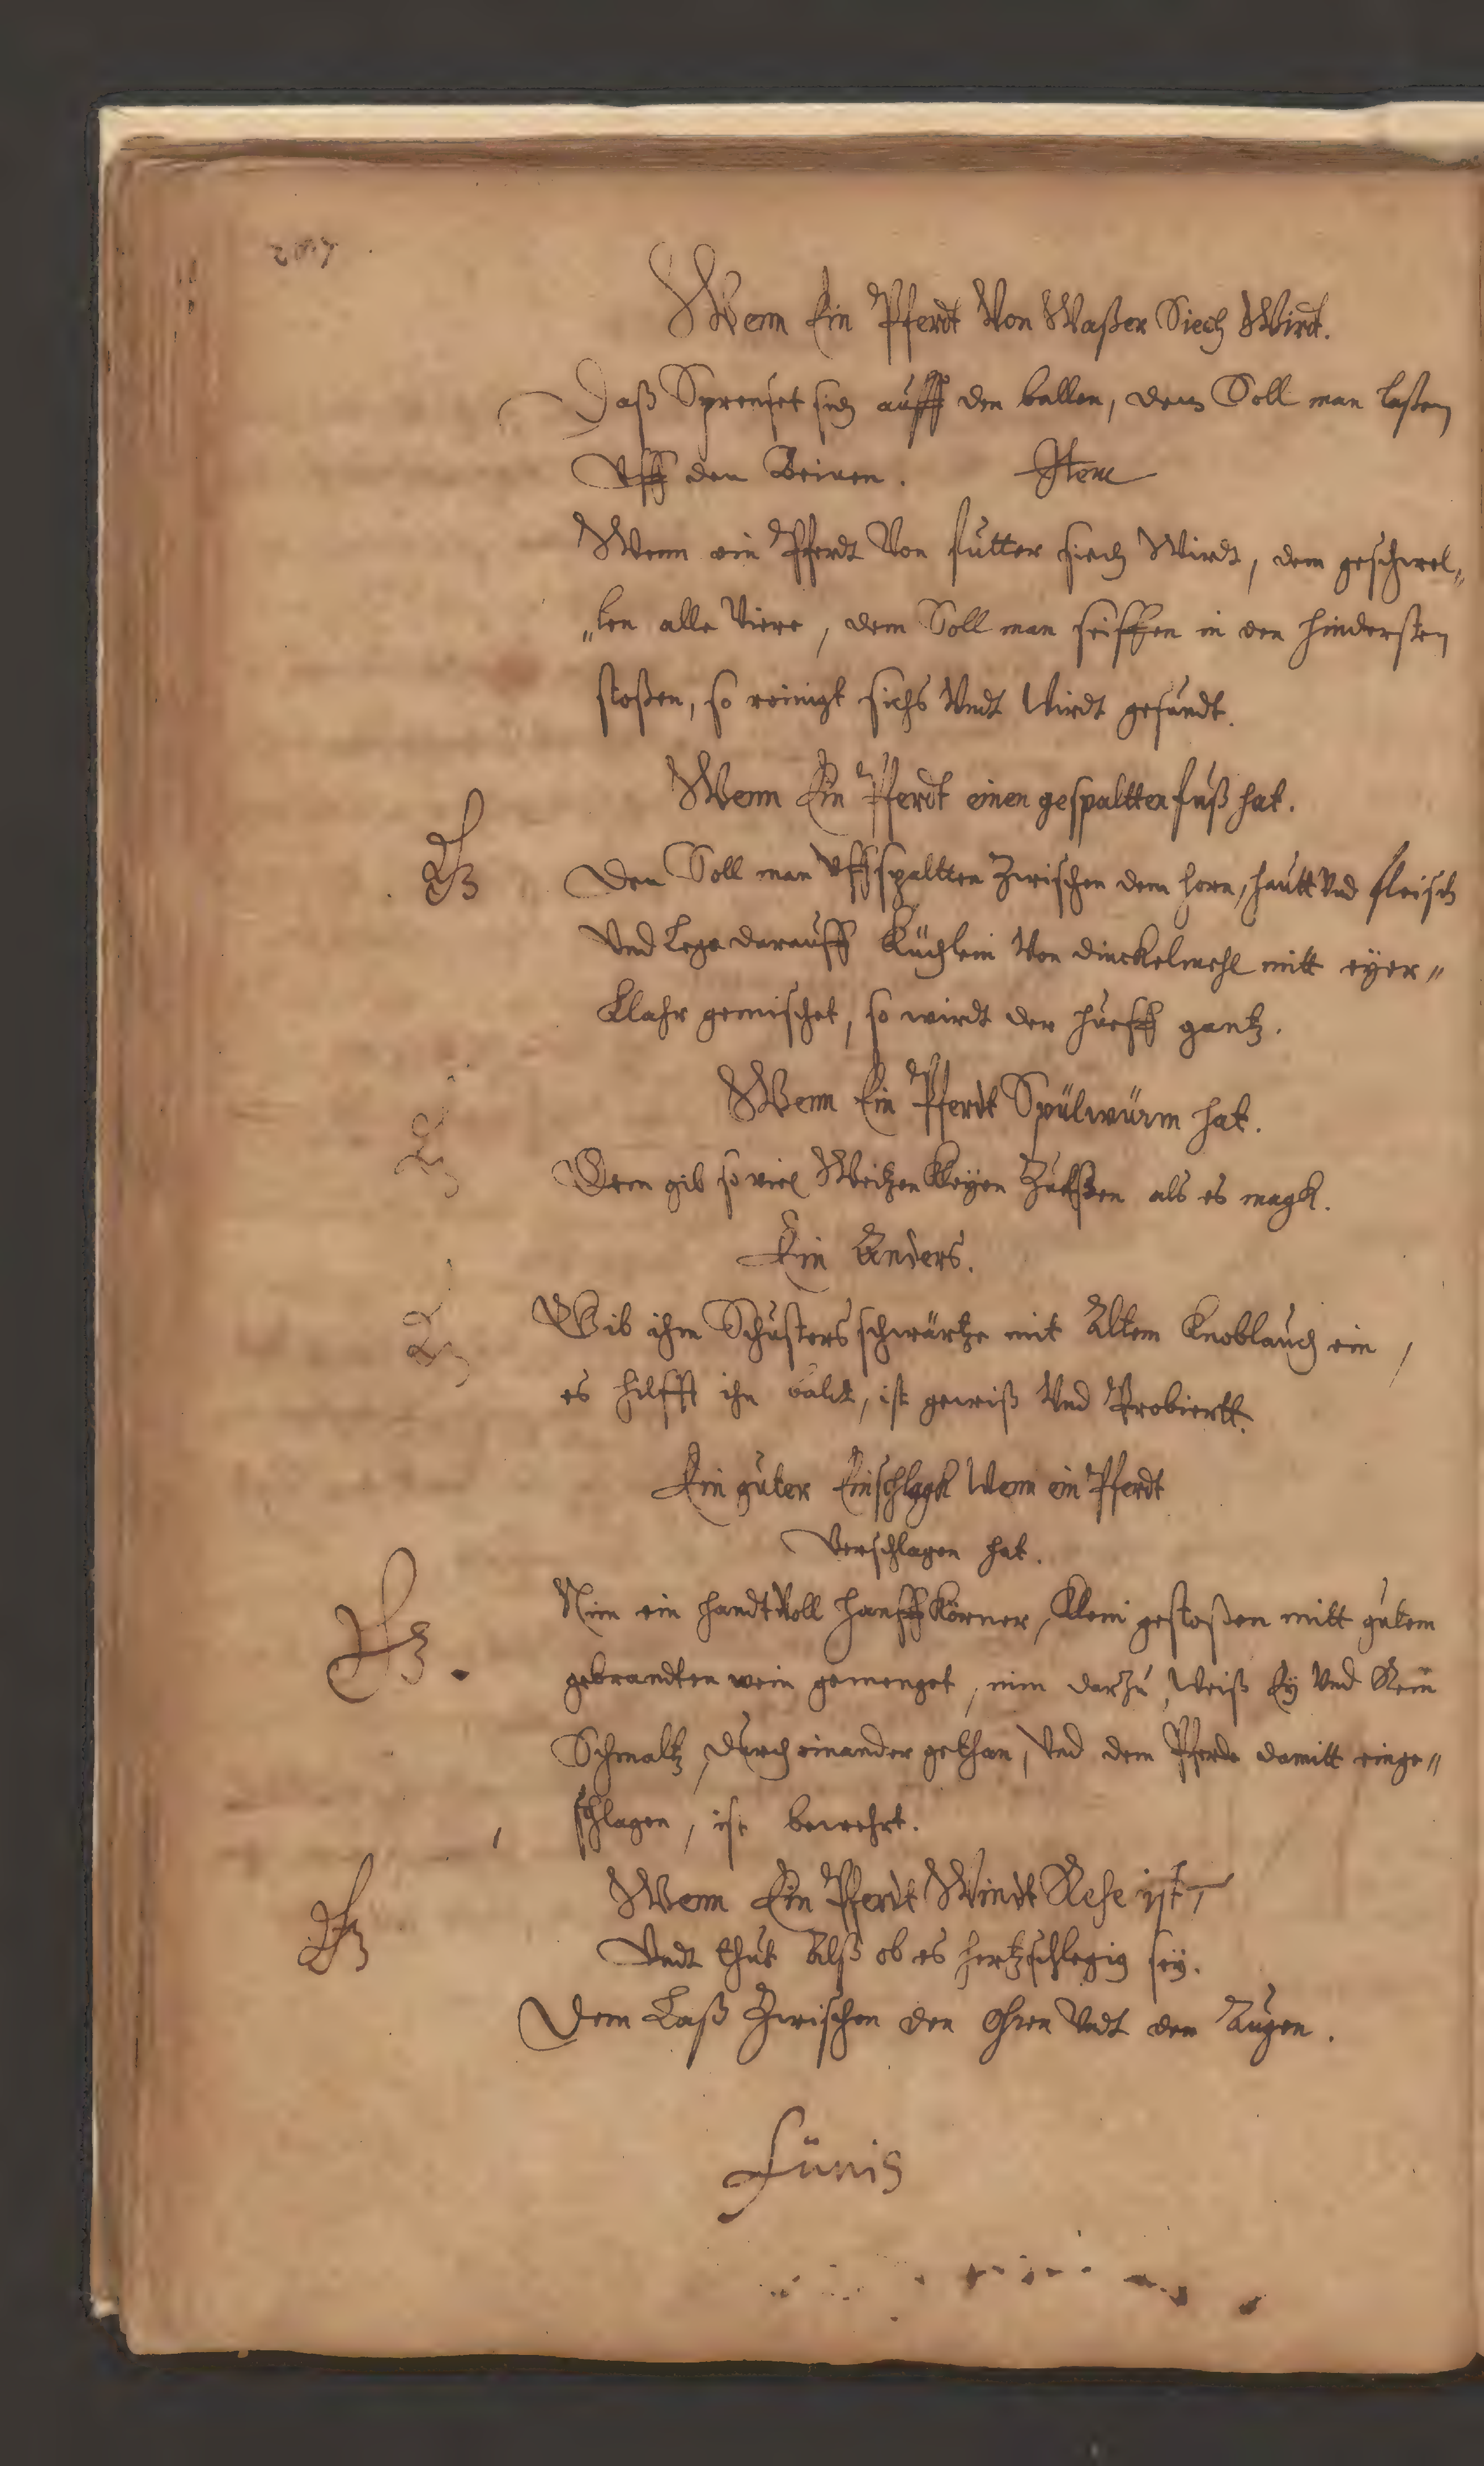 Wenn Ein Pferdt Von Waßer Siech Wirdt.
Daß Sprenset sich auff den ballen, dem Soll man laßen
Vff den Beinen. Item
Wenn ein Pferdt Von futter siech Wirdt, dem geschwel„
„len alle Viere, dem Soll man seiffen in den hindersten
stoßen, so reinigt sichs Vndt Wirdt gesundt.
Wenn Ein Pferdt einen gespaltten fuß hat.
Den Soll man Vffspaltten Zwischen dem horn, hautt Vnd fleisch
Vnd Lege darauff Küchlein Von dinckelmehl mitt eyer„
Klahr gemischet, so wirdt der hueff gantz.
Wenn Ein Pferdt Spülwürm hat.
Dem gib so viel Weitzen Kleyen Zu eßen als es magk.
Ein Anders.
Gib ihm Schusters schwärtze mit Altem Knoblauch ein,
es hilfft ihn baldt, ist gewiß Vnd Probiertt.
Ein guter Einschlagk Wenn ein Pferdt
Verschlagen hat.
Nim ein handt Voll hanff Körner, Klein gestoßen mitt gutem
gebrandten wein gemenget, nim darzu, Weiß Ey Vnd
Schmaltz, durch einander gethan, Vnd dem Pferde damitt einge„
schlagen, ist bewehrt.
Wenn Ein Pferdt Windt Rehe ist,
Vndt thut Alß ob es hertzschlegig sey.
Dem Laß Zwischen den Ohren Vndt den Augen.